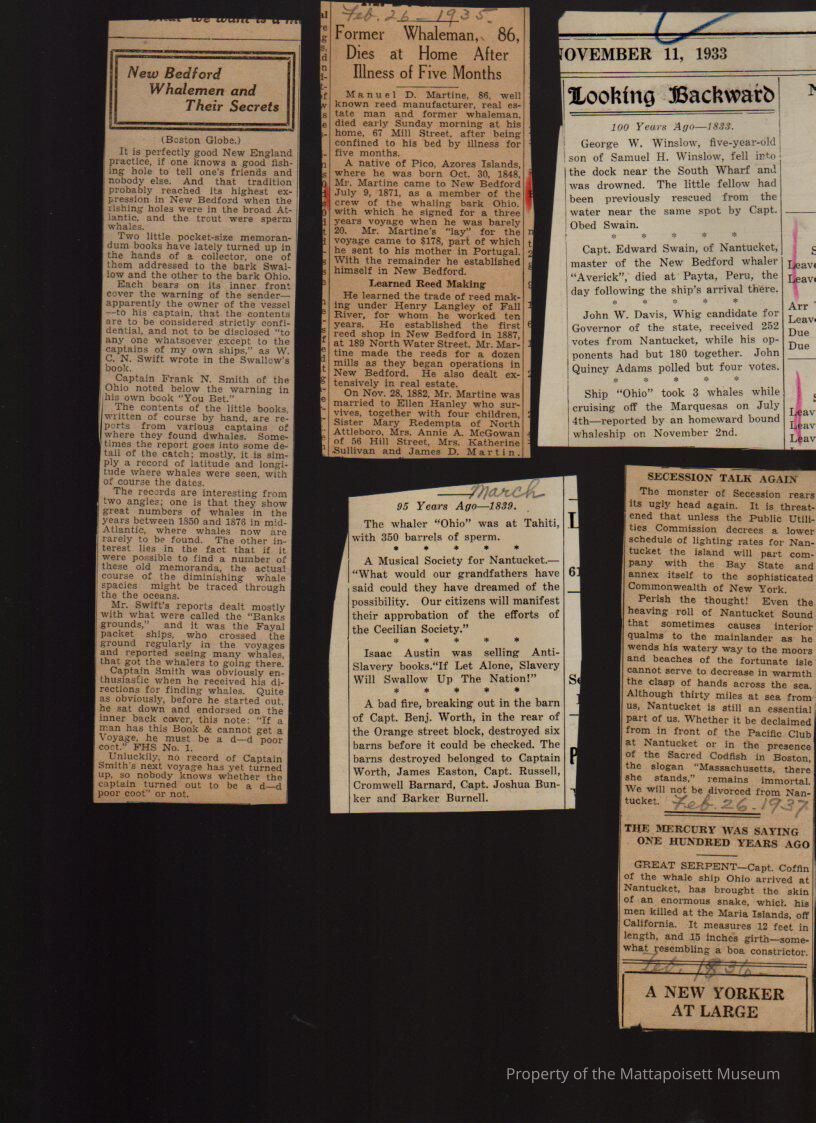 New Bedford
Whalemen and
Their Secrets
(Boston Globe.)
It is perfectly good New England
practice, if one knows a good fish-
ing hole to tell one's friends and
nobody else. And that tradition
probably reached its highest ex-
pression in New Bedford when the
fishing holes were in the broad At-
lantic, and the trout were sperm
whales.
Two little pocket-size memoran-
dum books have lately turned up in
the hands of a collector, one of
them addressed to the bark Swal-
low and the other to the bark Ohio.
Each bears on its inner front
cover the warning of the sender—
apparently the owner of the vessel
—to his captain, that the contents
are to be considered strictly confi-
dential, and not to be disclosed "to
any one whatsoever except to the
captains of my own ships," as W.
C. N. Swift wrote in the Swallow's
book.
Captain Frank N. Smith of the
Ohio noted below the warning in
his own book "You Bet."
The contents of the little books,
written of course by hand, are re-
ports from various captains of
where they found dwhales. Some-
times the report goes into some de-
tail of the catch; mostly, it is sim-
ply a record of latitude and longi-
tude where whales were seen, with
of course the dates.
The records are interesting from
two angles; one is that they show
great numbers of whales in the
years between 1850 and 1876 in mid-
Atlantic, where whales now are
rarely to be found. The other in-
terest lies in the fact that if it
were possible to find a number of
these old memoranda, the actual
course of the diminishing whale
species might be traced through
the the oceans.
Mr. Swift's reports dealt mostly
with what were called the "Banks
grounds," and it was the Fayal
packet ships, who crossed the
ground regularly in the voyages
and reported seeing many whales,
that got the whalers to going there.
Captain Smith was obviously en-
thusiastic when he received his di-
rections for finding whales. Quite
as obviously, before he started out,
he sat down and endorsed on the
inner back cover, this note: "If a
man has this Book & cannot get a
Voyage, he must be a d—d poor
coot." FHS No. 1.
Unluckily, no record of Captain
Smith's next voyage has yet turned
up, so nobody knows whether the
captain turned out to be a d—d
poor coot" or not.
Feb. 26—1935.
Former Whaleman, 86,
Dies at Home After
Illness of Five Months
Manuel D. Martine, 86, well
known reed manufacturer, real es-
tate man and former whaleman,
died early Sunday morning at his
home, 67 Mill Street, after being
confined to his bed by illness for
five months.
A native of Pico, Azores Islands,
where he was born Oct. 30, 1848,
Mr. Martine came to New Bedford
July 9, 1871, as a member of the
crew of the whaling bark Ohio,
with which he signed for a three
years voyage when he was barely
20. Mr. Martine's "lay" for the
voyage came to $178, part of which
he sent to his mother in Portugal.
With the remainder he established
himself in New Bedford.
Learned Reed Making
He learned the trade of reed mak-
ing under Henry Langley of Fall
River, for whom he worked ten
years. He established the first
reed shop in New Bedford in 1887,
at 189 North Water Street. Mr. Mar-
tine made the reeds for a dozen
mills as they began operations in
New Bedford. He also dealt ex-
tensively in real estate.
On Nov. 28, 1882, Mr. Martine was
married to Ellen Hanley who sur-
vives, together with four children,
Sister Mary Redempta of North
Attleboro, Mrs. Annie A. McGowan
of 56 Hill Street, Mrs. Katherine
Sullivan and James D. Martin.
NOVEMBER 11, 1933
Looking Backward
100 Years Ago—1833.
George W. Winslow, five-year-old
son of Samuel H. Winslow, fell into
the dock near the South Wharf and
was drowned. The little fellow had
been previously rescued from the
water near the same spot by Capt.
Obed Swain.
* * * * *
Capt. Edward Swain, of Nantucket,
master of the New Bedford whaler
"Averick", died at Payta, Peru, the
day following the ship's arrival there.
* * * * *
John W. Davis, Whig candidate for
Governor of the state, received 252
votes from Nantucket, while his op-
ponents had but 180 together. John
Quincy Adams polled but four votes.
* * * * *
Ship "Ohio" took 3 whales while
cruising off the Marquesas on July
4th—reported by an homeward bound
whaleship on November 2nd.
Leave
Arr
Leave
Due
Due
Leav
Leav
Leav
March
95 Years Ago—1839.
The whaler "Ohio" was at Tahiti,
with 350 barrels of sperm.
* * * * *
A Musical Society for Nantucket.—
"What would our grandfathers have
said could they have dreamed of the
possibility. Our citizens will manifest
their approbation of the efforts of
the Cecilian Society."
* * * * *
Isaac Austin was selling Anti-
Slavery books."If Let Alone, Slavery
Will Swallow Up The Nation!"
* * * * *
A bad fire, breaking out in the barn
of Capt. Benj. Worth, in the rear of
the Orange street block, destroyed six
barns before it could be checked. The
barns destroyed belonged to Captain
Worth, James Easton, Capt. Russell,
Cromwell Barnard, Capt. Joshua Bun-
ker and Barker Burnell.
SECESSION TALK AGAIN
The monster of Secession rears
its ugly head again. It is threat-
ened that unless the Public Utili-
ties Commission decrees a lower
schedule of lighting rates for Nan-
tucket the island will part com-
pany with the Bay State and
annex itself to the sophisticated
Commonwealth of New York.
Perish the thought! Even the
heaving roll of Nantucket Sound
that sometimes causes interior
qualms to the mainlander as he
wends his watery way to the moors
and beaches of the fortunate isle
cannot serve to decrease in warmth
the clasp of hands across the sea.
Although thirty miles at sea from
us, Nantucket is still an essential
part of us. Whether it be declaimed
from in front of the Pacific Club
at Nantucket or in the presence
of the Sacred Codfish in Boston,
the slogan "Massachusetts, there
she stands," remains immortal.
We will not be divorced from Nan-
tucket. Feb. 26. 1937
THE MERCURY WAS SAYING
ONE HUNDRED YEARS AGO
GREAT SERPENT—Capt. Coffin
of the whale ship Ohio arrived at
Nantucket, has brought the skin
of an enormous snake, which his
men killed at the Maria Islands, off
California. It measures 12 feet in
length, and 15 inches girth—some-
what resembling a boa constrictor.
Feb. 1836
A NEW YORKER
AT LARGE
Property of the Mattapoisett Museum